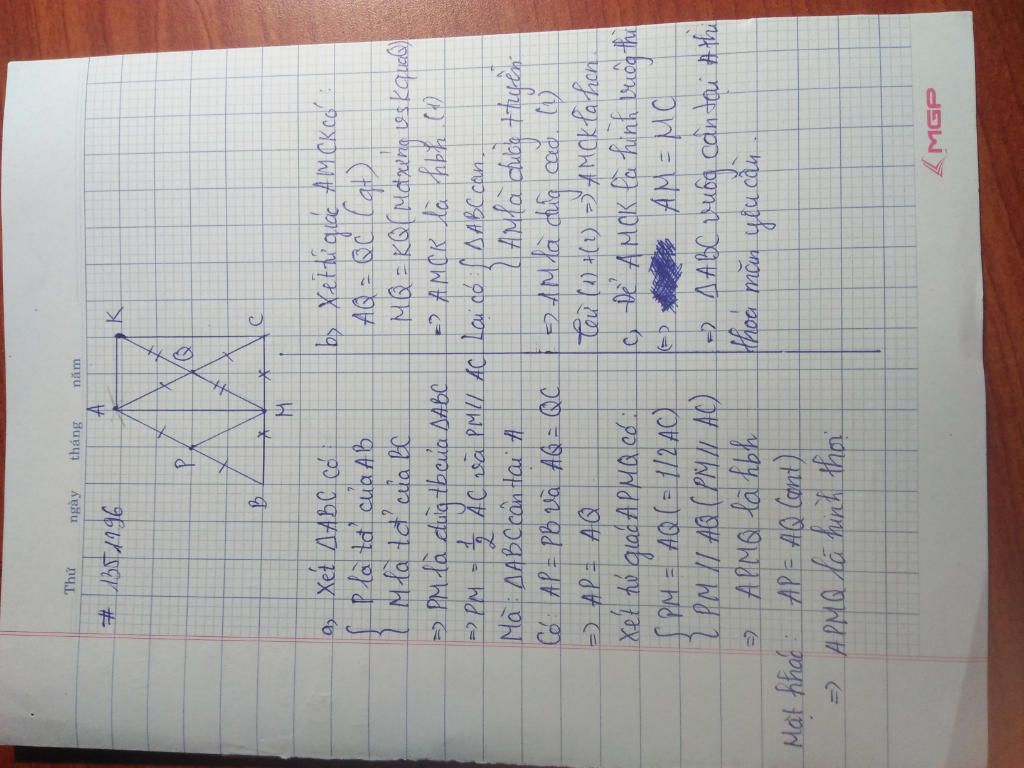 Thứ ngày tháng năm
# 1351496
A
K
P
Q
B
M
C
a, Xét ΔABC có:
{ P là tđ' của AB
M là tđ' của BC
=> PM là đường tb của ΔABC
=> PM = 1/2 AC và PM // AC
Mà: ΔABC cân tại A
Có: AP = PB và AQ = QC
=> AP = AQ
Xét tứ giác APMQ có:
{ PM = AQ (= 1/2 AC)
PM // AQ (PM // AC)
=> APMQ là hbh
Mặt khác: AP = AQ (cmt)
=> APMQ là hình thoi
b, Xét tứ giác AMCK có:
AQ = QC (gt)
MQ = KQ (M đxứng vs K qua Q)
=> AMCK là hbh (1)
Lại có: { ΔABC cân.
AM là đường t tuyến
=> AM là đường cao (2)
Từ (1)+(2) => AMCK là hcn.
c, Để AMCK là hình vuông thì
(=> AM = MC
=> ΔABC vuông cân tại A thì
thỏa mãn yêu cầu.
MGP